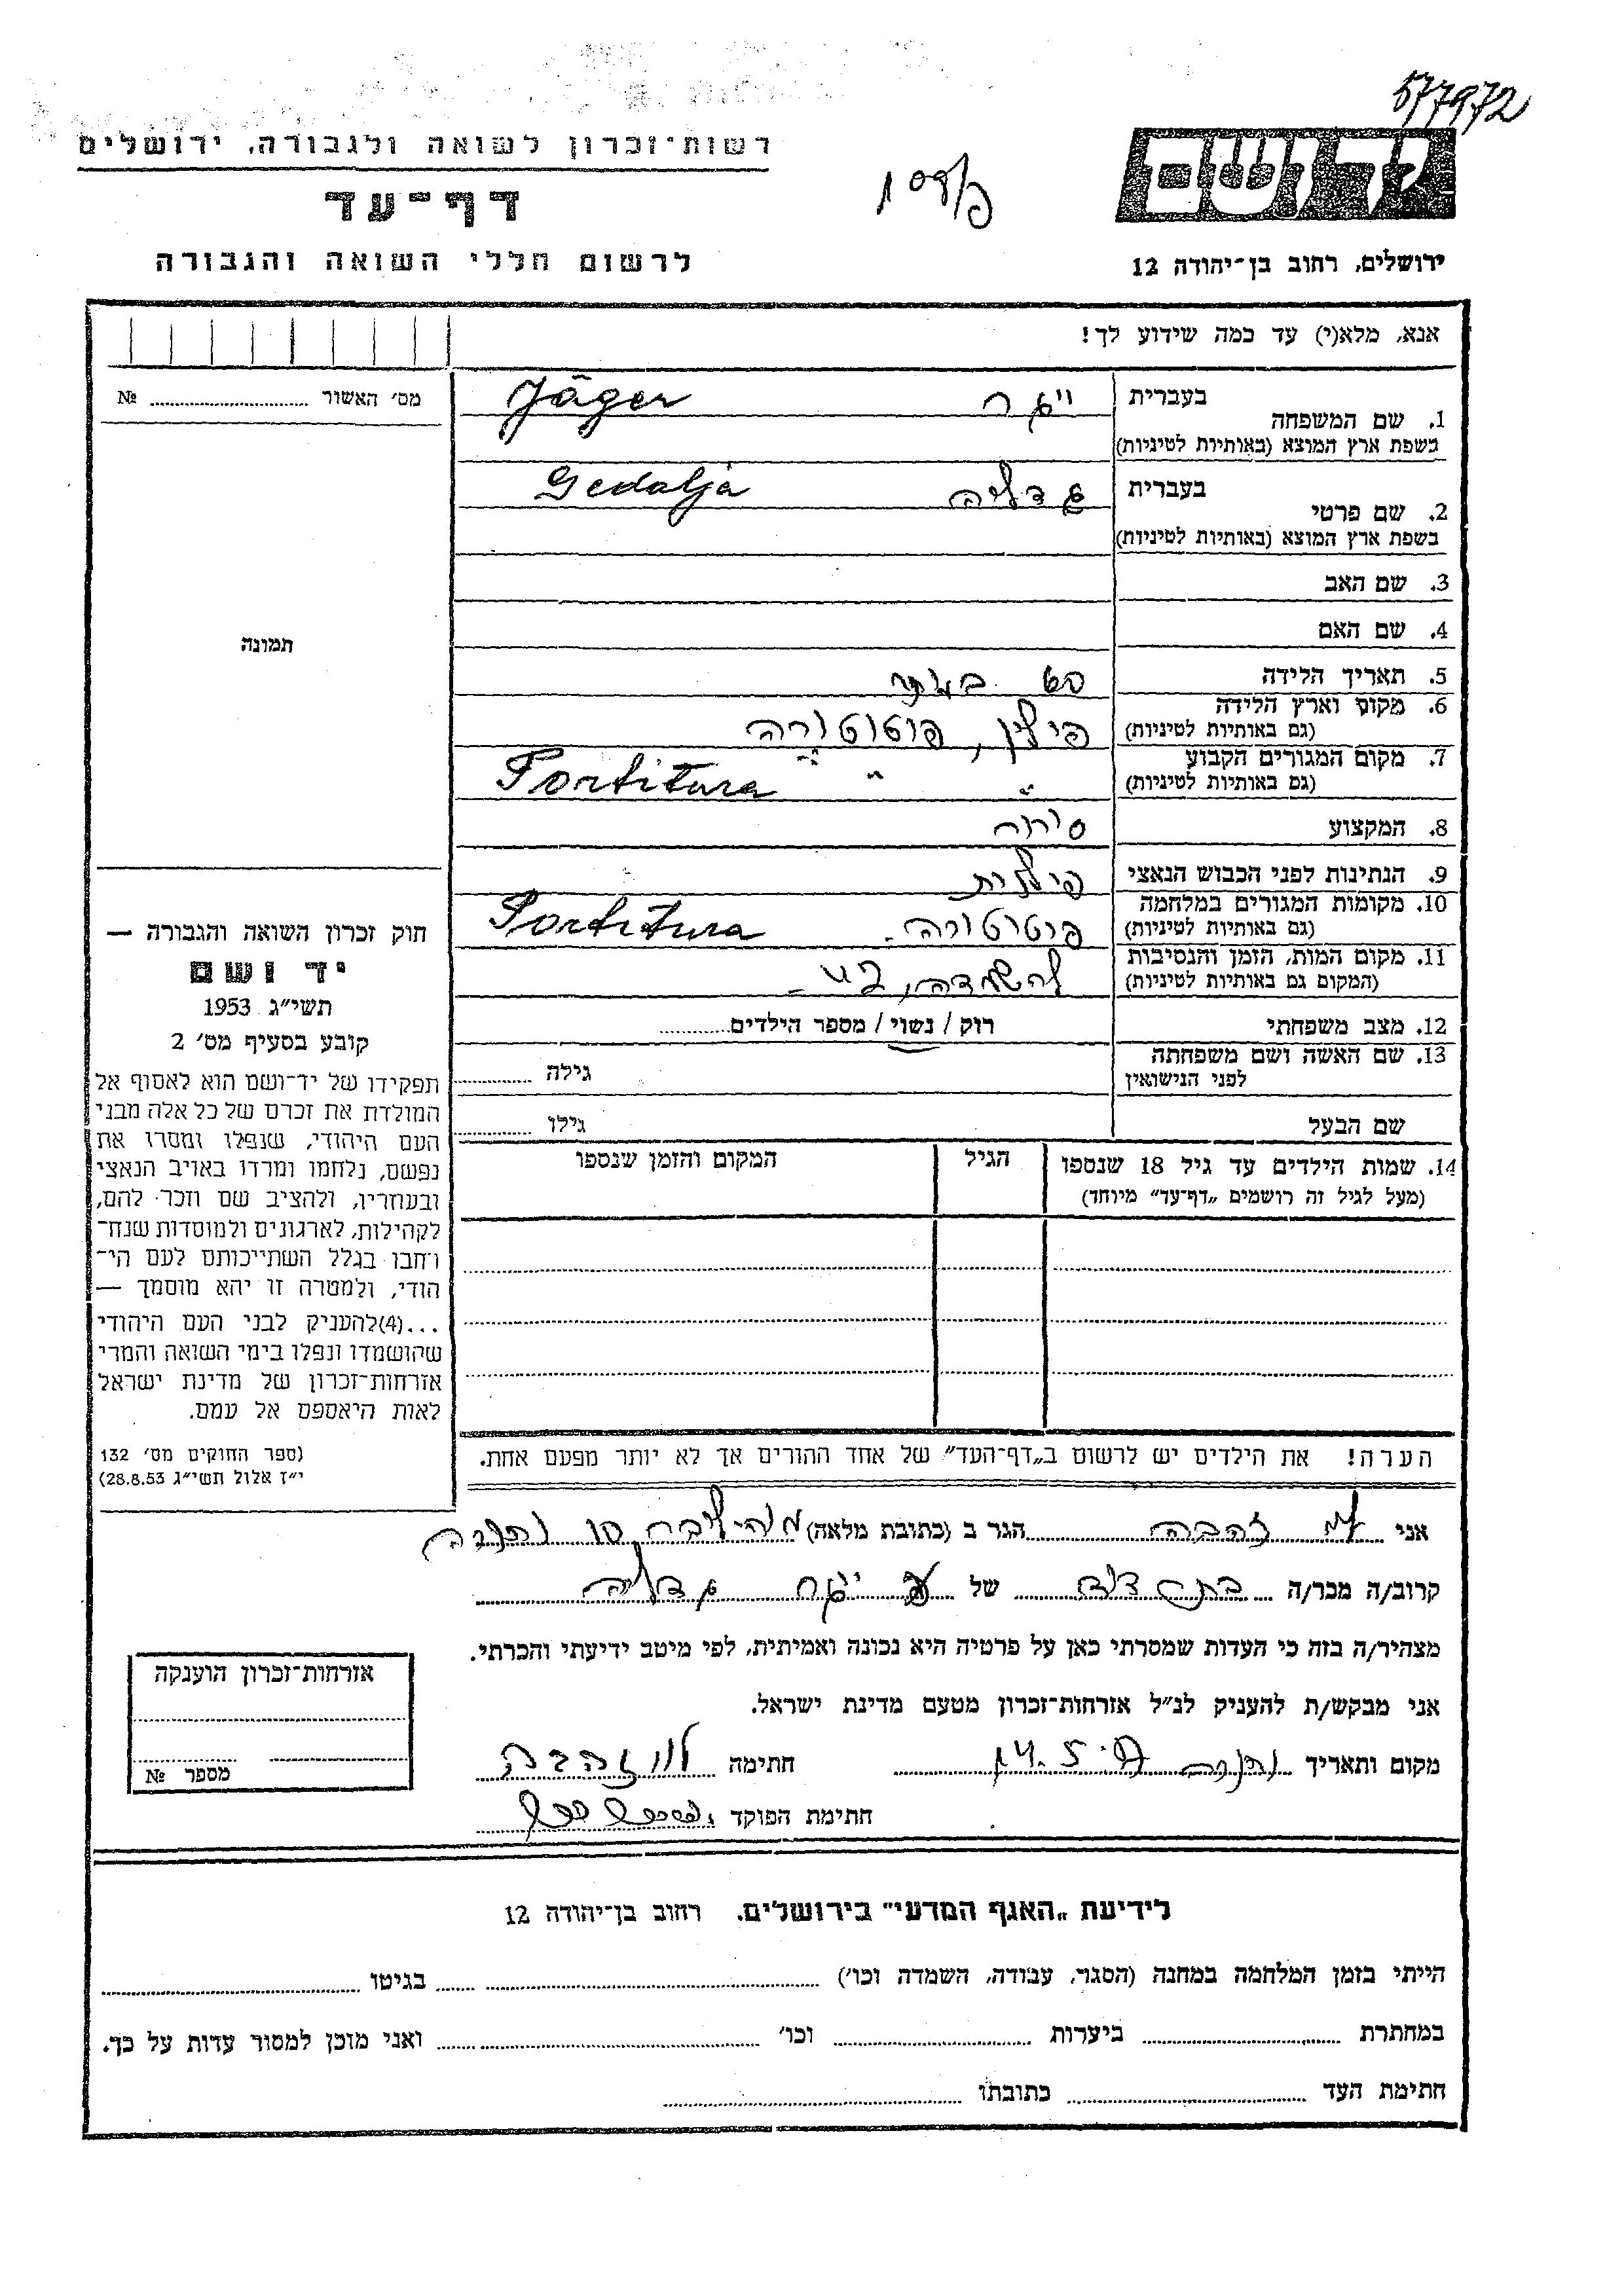 577972
רשות־זכרון לשואה ולגבורה, ירושלים
דף־עד
לרשום חללי השואה והגבורה
ידושם
ירושלים, רחוב בן־יהודה 12
אנא, מלא(י) עד כמה שידוע לך!
מס׳ האשור № 
1. שם המשפחה
בעברית ייגר Jäger
בשפת ארץ המוצא (באותיות לטיניות)
2. שם פרטי
בעברית גדליה Gedalja
בשפת ארץ המוצא (באותיות לטיניות)
3. שם האב
4. שם האם
תמונה
5. תאריך הלידה
6. מקום וארץ הלידה
(גם באותיות לטיניות) פולין,
7. מקום המגורים הקבוע
(גם באותיות לטיניות) " " Portitura
8. המקצוע סוחר
9. הנתינות לפני הכבוש הנאצי פולנית
10. מקומות המגורים במלחמה
(גם באותיות לטיניות) פורטיטורה. Portitura
11. מקום המות, הזמן והנסיבות
(המקום גם באותיות לטיניות)
12. מצב משפחתי רוק / נשוי / מספר הילדים
13. שם האשה ושם משפחתה
לפני הנישואין גילה
שם הבעל גילו
14. שמות הילדים עד גיל 18 שנספו הגיל המקום והזמן שנספו
(מעל לגיל זה רושמים „דף־עד” מיוחד)
חוק זכרון השואה והגבורה —
יד ושם
תשי״ג 1953
קובע בסעיף מס׳ 2
תפקידו של יד־ושם הוא לאסוף אל
המולדת את זכרם של כל אלה מבני
העם היהודי, שנפלו ומסרו את
נפשם, נלחמו ומרדו באויב הנאצי
ובעוזריו, ולהציב שם וזכר להם,
לקהילות, לארגונים ולמוסדות שנח־
רחבו בגלל השתייכותם לעם הי־
הודי, ולמטרה זו יהא מוסמך —
...(4)להעניק לבני העם היהודי
שהושמדו ונפלו בימי השואה והמרי
אזרחות־זכרון של מדינת ישראל
לאות היאספם אל עמם.
(ספר החוקים מס׳ 132
י״ז אלול תשי״ג 28.8.53)
הערה! את הילדים יש לרשום ב„דף־העד” של אחד ההורים אך לא יותר מפעם אחת.
אני זהבה הגר ב (כתובת מלאה)
קרוב/ה מכר/ה בת דוד של ייגר גדליה
מצהיר/ה בזה כי העדות שמסרתי כאן על פרטיה היא נכונה ואמיתית, לפי מיטב ידיעתי והכרתי.
אני מבקש/ת להעניק לנ״ל אזרחות־זכרון מטעם מדינת ישראל.
מקום ותאריך חתימה זהבה
חתימת הפוקד
אזרחות־זכרון הוענקה
מספר №
לידיעת „האגף המדעי” בירושלים. רחוב בן־יהודה 12
הייתי בזמן המלחמה במחנה (הסגר, עבודה, השמדה וכו׳) בגיטו
במחתרת ביערות וכו׳ ואני מוכן למסור עדות על כך.
חתימת העד כתובתו